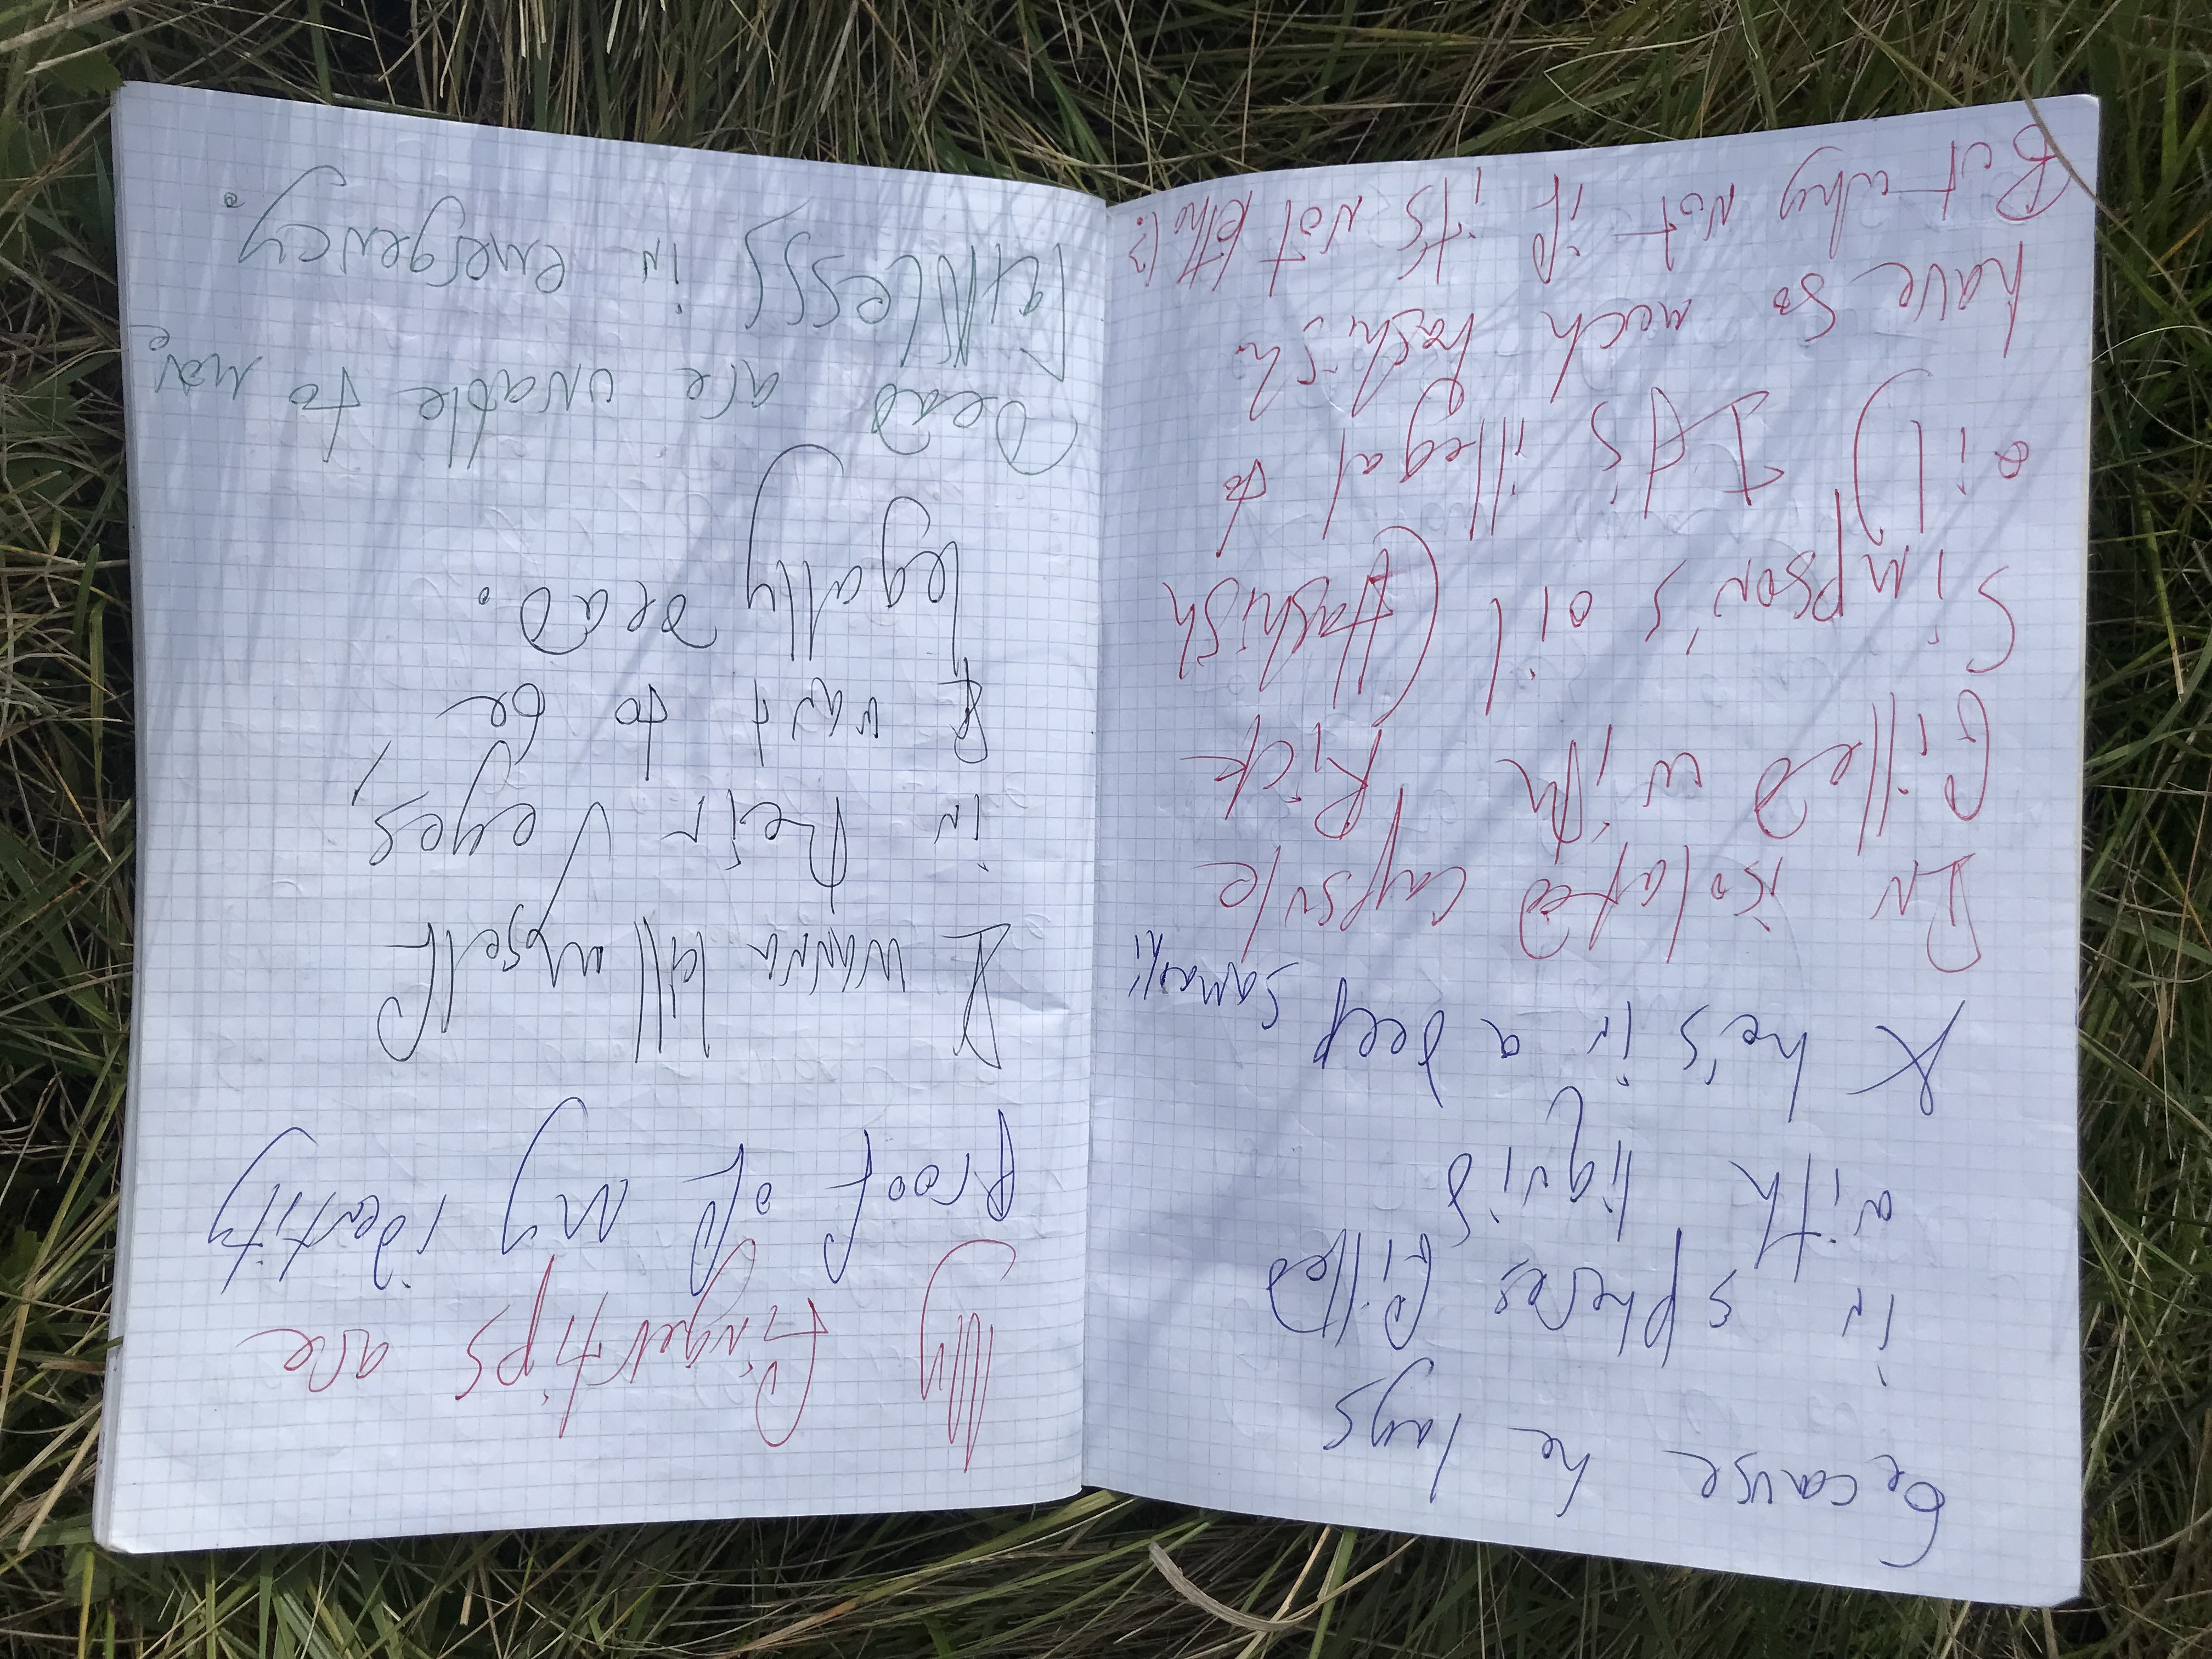 because he lays
in spheres filled
with liquid
& he's in a deep samathi
In isolated capsule
filled with Rick
Simpson's oil (Hashish
oil) It's illegal to
have so much hashish.
But why not if it's not lethal?
My fingertips are
proof of my identity
I wanna kill myself
in their eyes,
I want to be
legally dead.
Dead are unable to move
Unless in emergency.